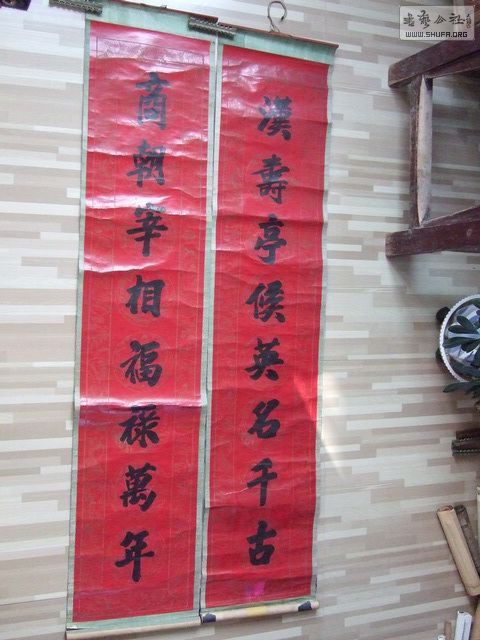 漢壽亭侯英名千古
商朝宰相福祿萬年
书艺公社
WWW.SHUFA.ORG